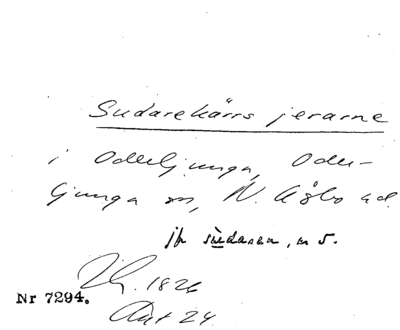 Sudarekärrs jerarne
i Oderljunga, Oder-
ljunga sn, N. Åsbo hd.
jfr sudare, n 5.
1826
Nr 7294.
Ant 24